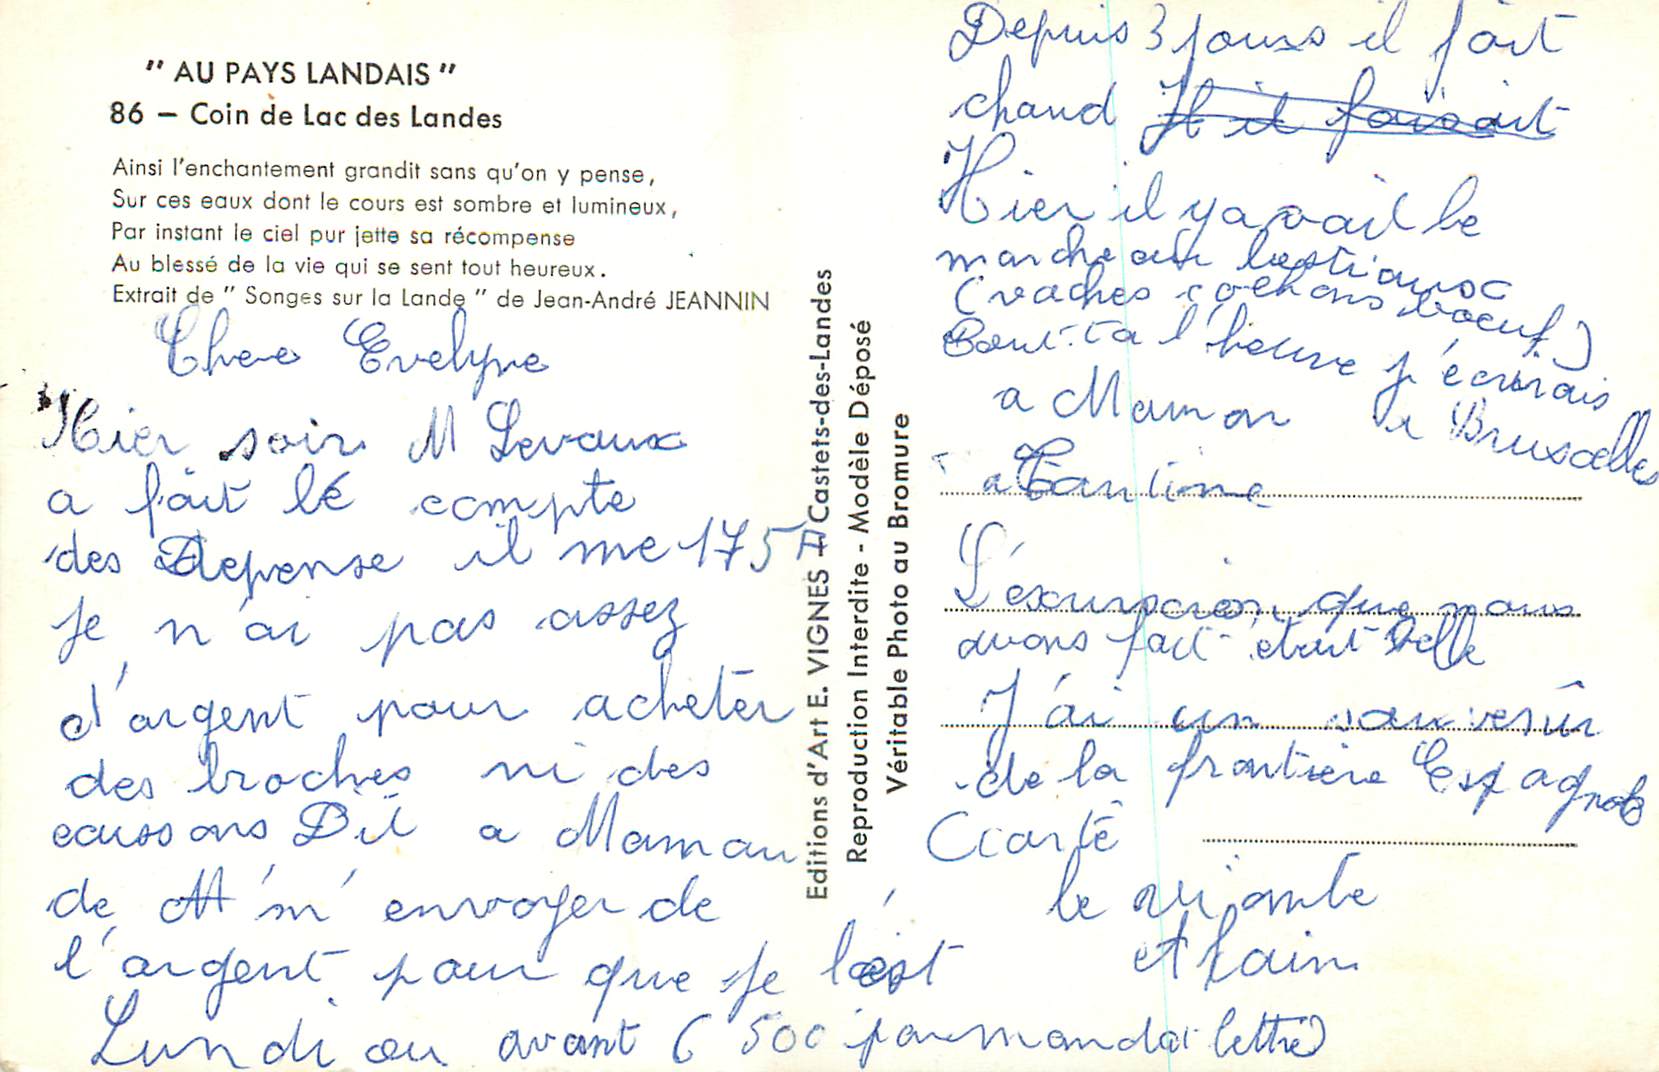 " AU PAYS LANDAIS "
86 – Coin de Lac des Landes
Ainsi l'enchantement grandit sans qu'on y pense,
Sur ces eaux dont le cours est sombre et lumineux,
Par instant le ciel pur jette sa récompense
Au blessé de la vie qui se sent tout heureux.
Extrait de " Songes sur la Lande " de Jean-André JEANNIN
Chere Evelyne
Hier soir M Levaux
a fait lé compte
des Depense il me 175
je n'ai pas assez
d'argent pour acheter
des broches ni des
ecussons Dit a Maman
de m'envoyer de
l'argent pour que je l'ai
Lundi ou avant ( 500 par mandat lettre)
Editions d'Art E. VIGNES – Castets-des-Landes
Reproduction Interdite - Modèle Déposé
Véritable Photo au Bromure
Depuis 3 jours il fait
chaud H il faisait
Hier il y avait le
marche aux bestiaux
(vaches cochons boeuf)
Tout-ta l'heure j'écrirais
a Maman de Bruxelles
a Tantine
L'excursion que nous
avons fait etait belle
J'ai un souvenir
de la frontière Espagnole
Ciarté
le
Alain